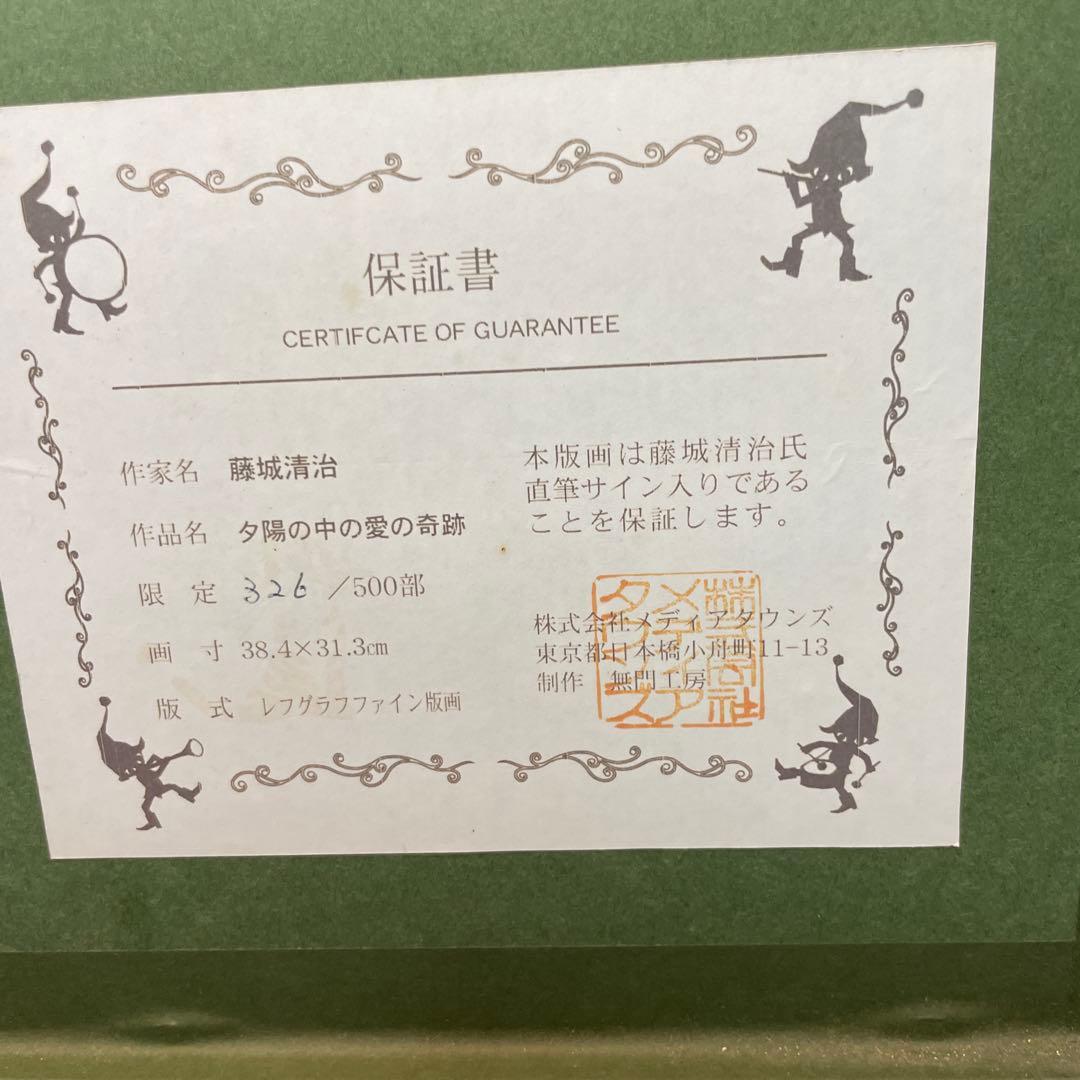 保証書
CERTIFCATE OF GUARANTEE
作家名 藤城清治
作品名 夕陽の中の愛の奇跡
限 定 326 /500部
画 寸 38.4×31.3cm
版 式 レフグラフファイン版画
本版画は藤城清治氏
直筆サイン入りである
ことを保証します。
株式会社メディアタウンズ
東京都日本橋小舟町11-13
制作 無門工房
株式会社
メディア
タウンズ